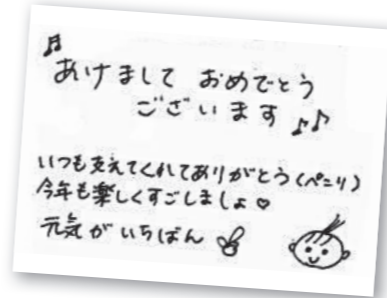 あけまして おめでとう
ございます
いつも支えてくれてありがとう(ペコリ)
今年も楽しくすごしましょ♡
元気がいちばん